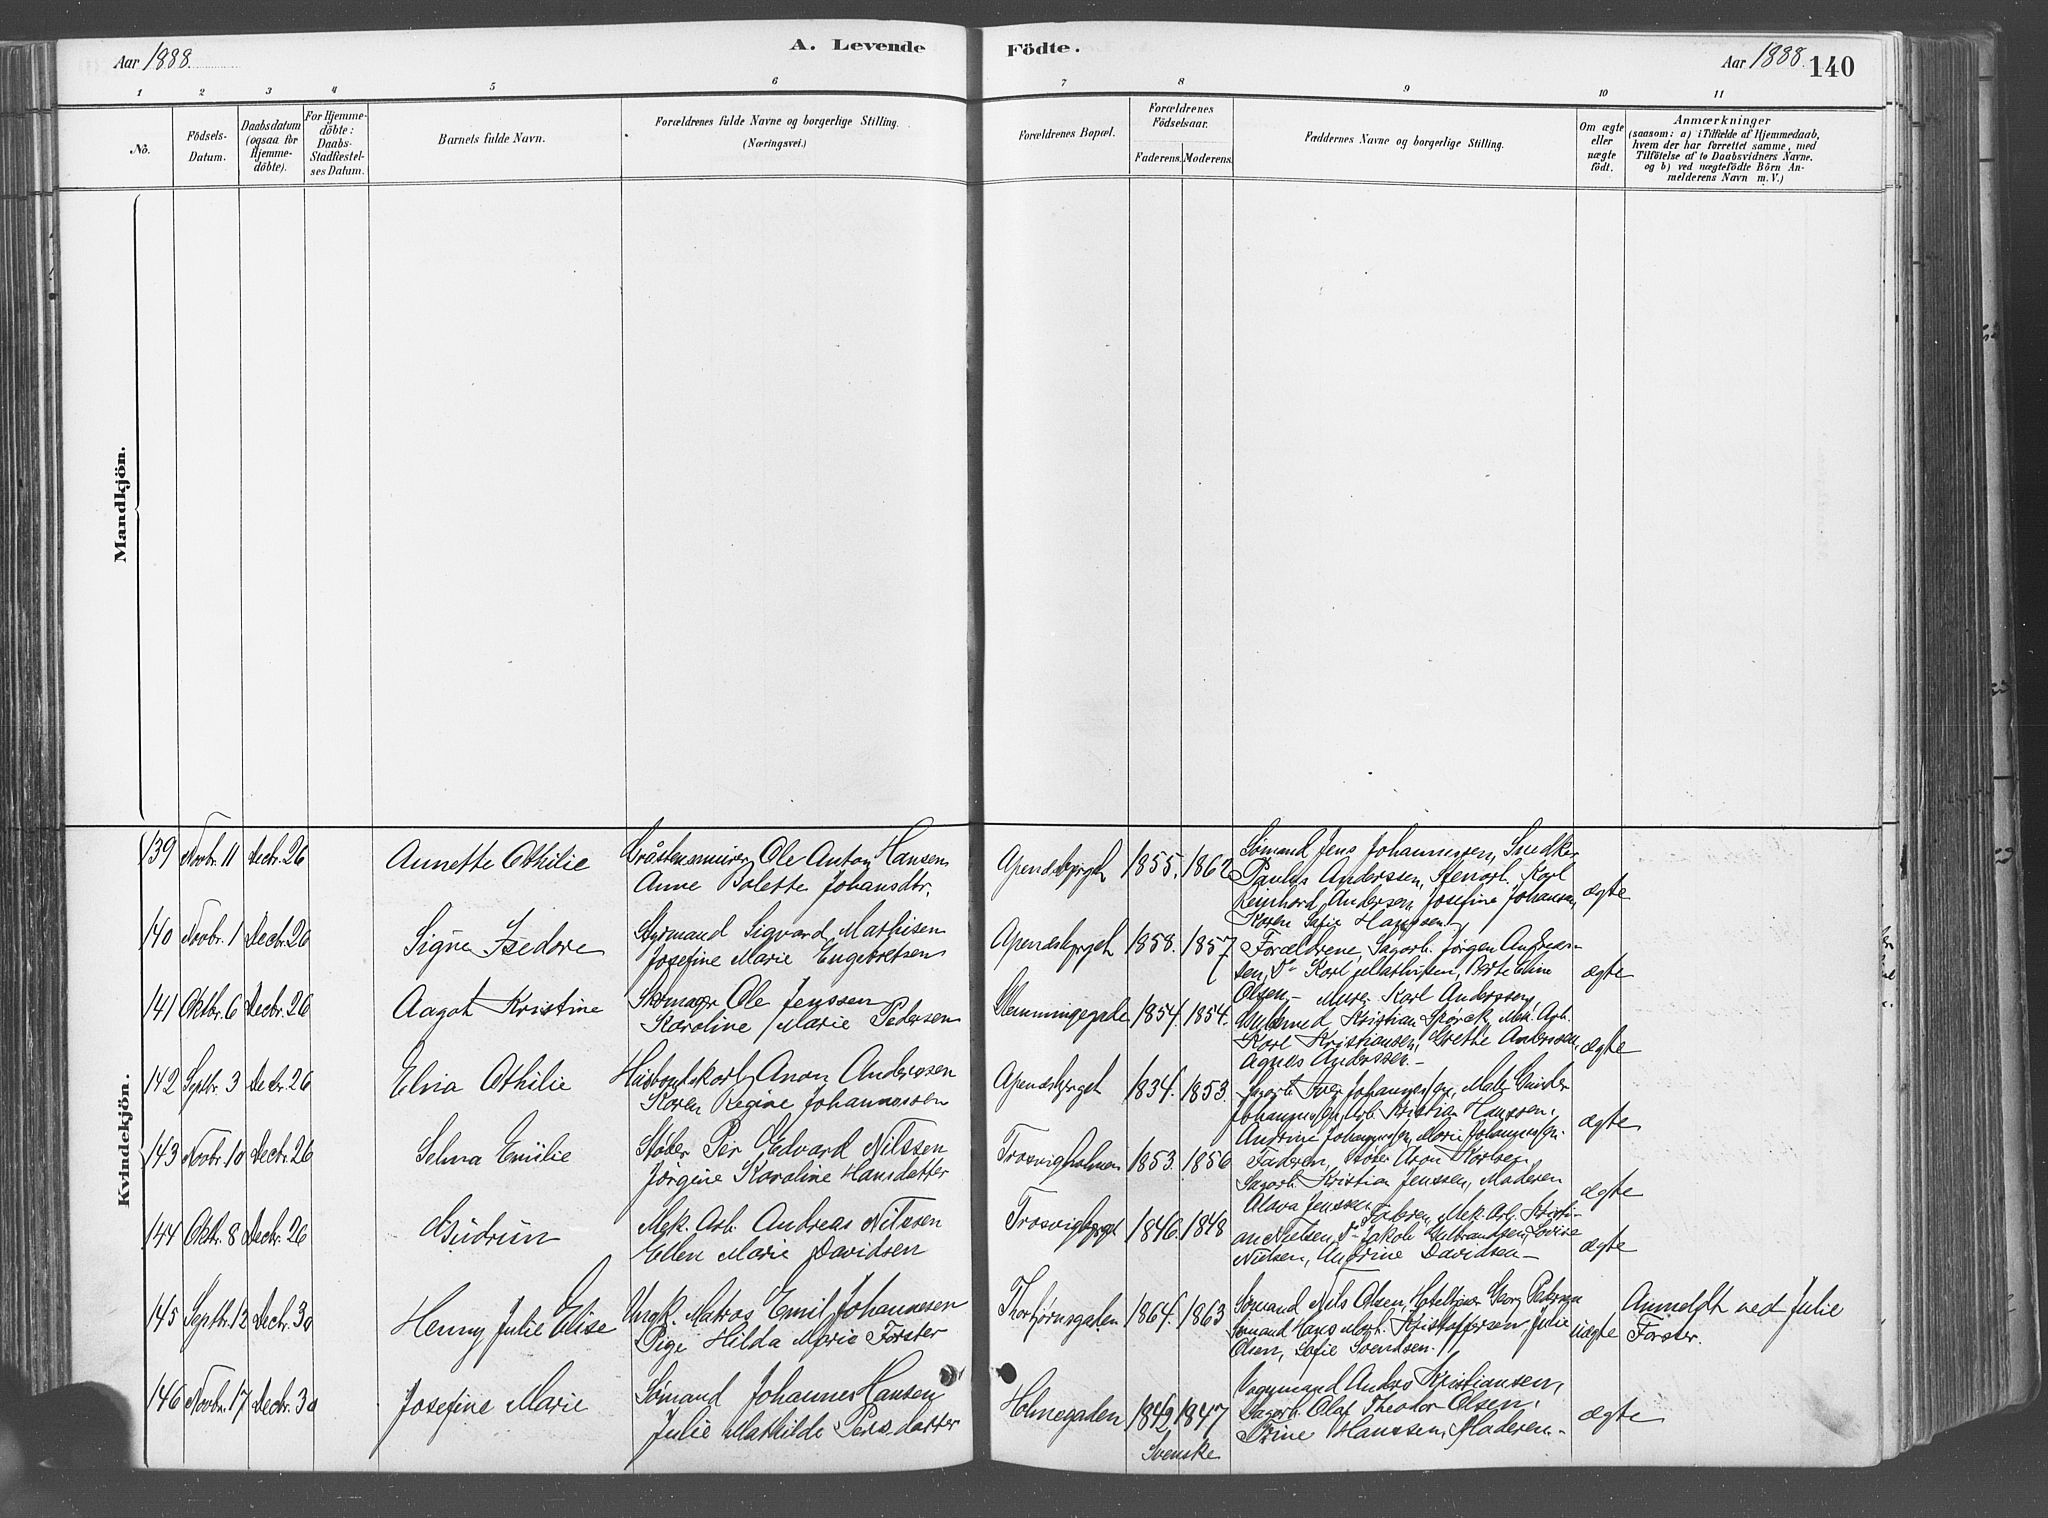 Aar 1888.
A. Levende
Födte.
Aar 1888.
140
1 2 3 4 5 6 7 8 9 10 11
No.
Födsels-
Datum.
Daabsdatum
(ogsaa for
Hjemme-
döbte).
For Hjemme-
döbte:
Daabs-
Stadfæstel-
ses Datum.
Barnets fulde Navn.
Forældrenes fulde Navne og borgerlige Stilling.
(Næringsvei.)
Forældrenes Bopæl.
Forældrenes
Födselsaar.
Faderens.
Moderens.
Faddernes Navne og borgerlige Stilling.
Om ægte
eller
uægte
födt.
Anmærkninger
(saasom: a) i Tilfælde af Hjemmedaab,
hvem der har forrettet samme, med
Tilföielse af to Daabsvidners Navne.
og b) ved uægtefödte Börn An-
melderens Navn m. V.)
Mandkjön.
Kvindekjön.
139 Novbr. 11 Decbr. 26 Annette Othilie
Ole Anton Hansen
Anne Bolette Johansdtr.
1855. 1862
Sømand Jens Johannessen, Snedker
Paulus Anderssen, Stenarb. Karl
Reinhard Andersen, Josefine Johansen,
Karen Sofie Hanssen
ægte
140 Novbr. 1 Decbr. 26 Signe Isedore
Styrmand Sigvard Mathisen
Josefine Marie Engebretsen
1858. 1857
Forældrene, Sagarb. Jörgen Andreas-
sen, Do Karl Mathisen,
Olsen
ægte
141 Oktbr. 6 Decbr. 26 Aagot Kristine
Skomagr Ole Jenssen
Karoline Marie Pedersen
Glemmingegade 1854. 1854.
Murer Karl Anderssen,
Kristian Mek. Arb.
Karl Kristiansen, Grethe Anderssen,
Agnes Anderssen
ægte
142 Septbr. 3 Decbr. 26 Elna Othilie
Aron Anderssen
Karen Regine Johannessen
1834. 1853.
Sagarb. Johannessen,
Johannessen, Arb. Kristian Hanssen,
Andrine Johannessen, Marie Johannessen
ægte
143 Novbr. 10 Decbr. 26 Selma Emilie
Støber Per Edvard Nilssen
Jörgine Karoline Hansdatter
Trosvigholmen 1853. 1856
Faderen, Støber Aron Karlsen,
Sagarb. Kristian Jenssen, Moderen
Olava Jenssen
ægte
144 Oktbr. 8 Decbr. 26 Gudrun
Mek. Arb. Andreas Nilssen
Ellen Marie Davidsen
Trosvigberget 1846. 1848
Faderen, Mek. Arb. Kristi-
an Nielsen, Do Jakob Gulbrandsen, Lovise
Nielsen, Andrine Davidsen
ægte
145 Septbr. 12 Decbr. 30 Henny Julie Elise
Ungk. Matros Emil Johannesen
Pige Hilda Marie Forster
Thorbjørnsgaden 1864. 1863
Sømand Nils Olsen, Georg Pedersen
Sømand Hans Kristoffersen, Julie
Olsen, Sofie Svendsen.
Uægte
Anmeldt ved Julie
Forster.
146 Novbr. 17 Decbr. 30 Josefine Marie
Sømand Johannes Hansen
Julie Mathilde Persdatter
Holmegaden 1849. 1847
Svenske
Vognmand Anders Kristiansen,
Sagarb. Olaf Theodor Olsen,
Hanssen, Moderen
ægte